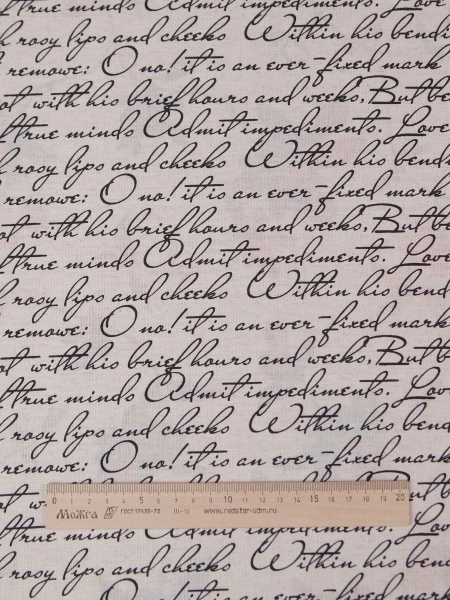 true minds Admit impediments. Love
rosy lips and cheeks Within his bendi
remowe: O no! it is an ever-fixed mark
ot with his brief hours and weeks, But be
true minds Admit impediments. Love
rosy lips and cheeks Within his bendi
remowe: O no! it is an ever-fixed mark
ot with his brief hours and weeks, But be
true minds Admit impediments. Love
rosy lips and cheeks Within his bend
remowe: O no! it is an ever-fixed mark
ot with his brief hours and weeks, But b
true minds Admit impediments. Lov
rosy lips and cheeks Within his bend
remowe: O no! it is an ever-fixed mark
ot w
0 1 2 3 4 5 6 7 8 9 10 11 12 13 14 15 16 17 18 19 20
Можга ГОСТ 17435-72 III-10 www.redstar-udm.ru
true minds Admit impediments. Lo
rosy lips and cheeks Within his bend
remowe: O no! it is an ever-fixed mark